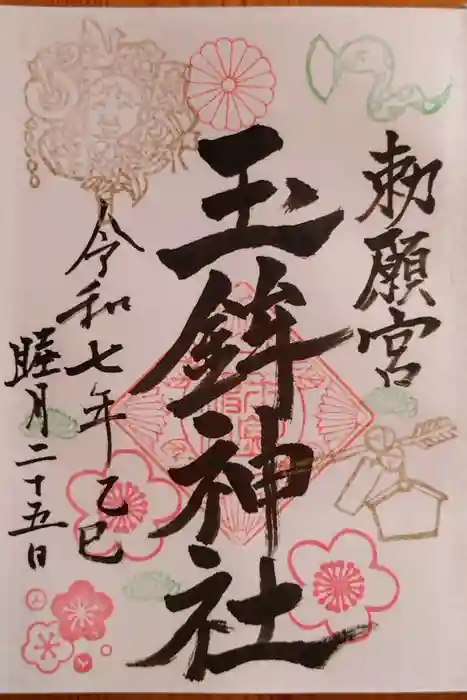 勅願宮
玉鉾神社
令和七年乙巳
睦月二十五日